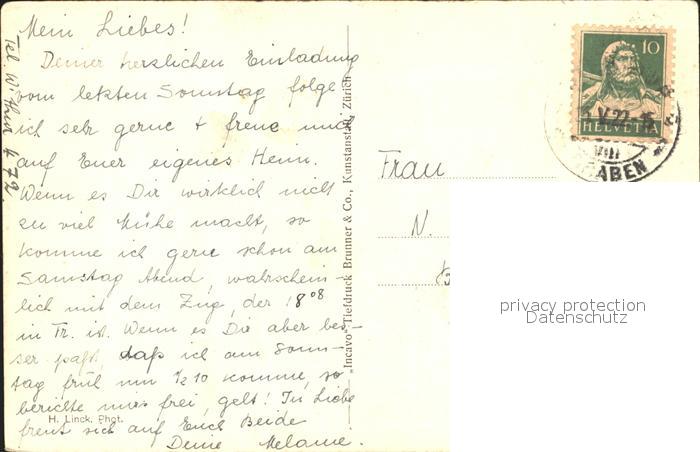 Mein Liebes!
Deiner herzlichen Einladung
vom letzten Sonntag folge
ich sehr gerne + freue mich
auf Euer eigenes Heim.
Wenn es Dir wirklich nicht
zu viel Mühe macht, so
komme ich gerne schon am
Samstag Abend, wahrschein-
lich mit dem Zug, der 18 08
in Fr. ist. Wenn es Dir aber bes-
ser paßt, daß ich am Sonn-
tag früh um 1/2 10 komme, so
berichte mirs frei, gelt! In Liebe
freut sich auf Euch Beide
Deine Melanie.
H. Linck. Phot.
Tel. W'thur 4.72
"Incavo" Tiefdruck Brunner & Co., Kunstanstalt, Zürich
10
HELVETIA
VIII
HABEN
Frau
N.
privacy protection
Datenschutz